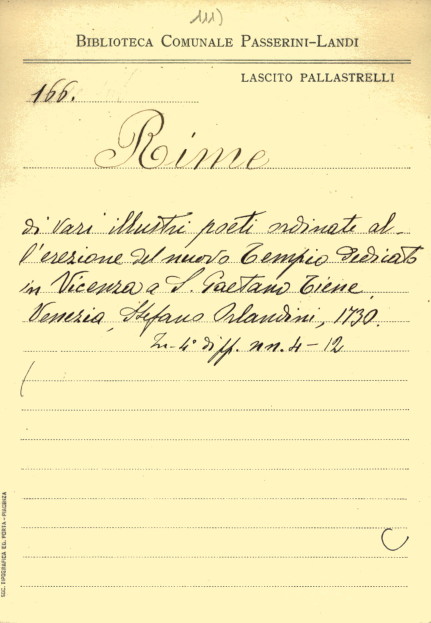 111)
BIBLIOTECA COMUNALE PASSERINI-LANDI
LASCITO PALLASTRELLI
166.
Rime
di vari illustri poeti ordinate al-
l'erezione del nuovo Tempio dedicato
in Vicenza a S. Gaetano Tiene.
Venezia, Stefano Orlandini, 1730.
In-4° di pp. nn. 4-12
SOC. TIPOGRAFICA ED. PORTA - PIACENZA